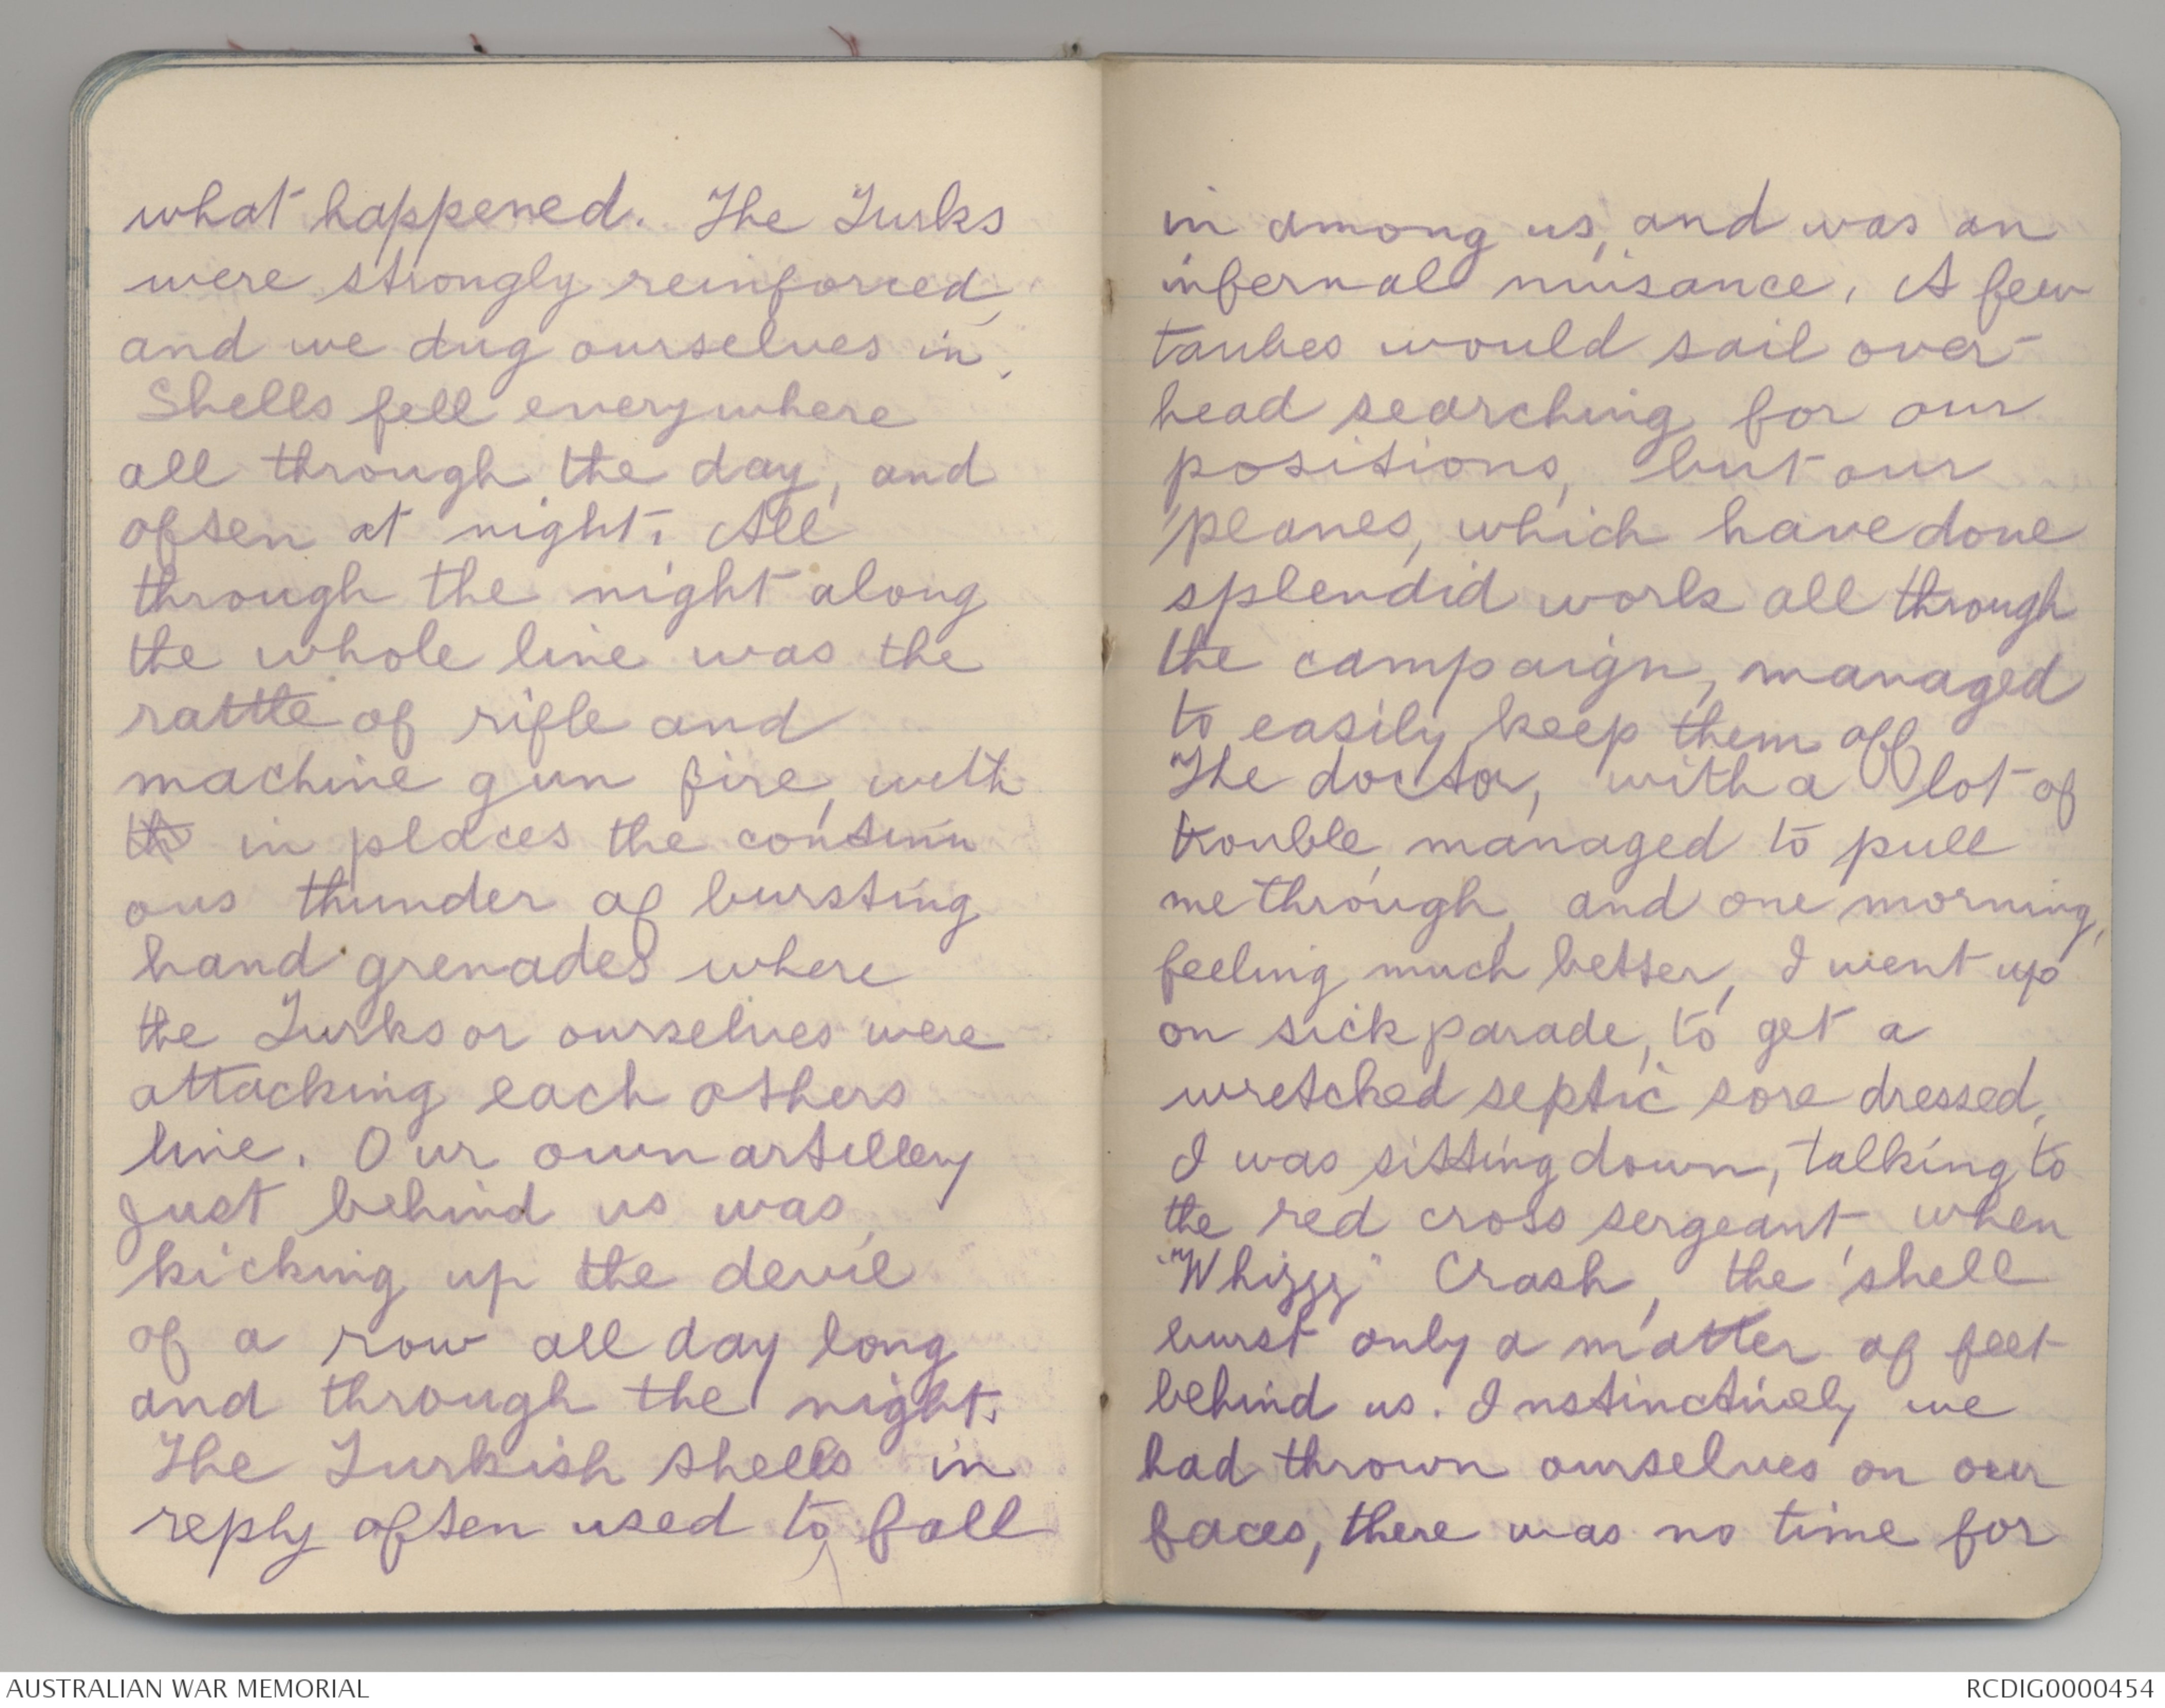 what happened. The Turks
were strongly reinforced,
and we dug ourselves in.
Shells fell everywhere
all through the day, and
often at night. All
through the night along
the whole line was the
rattle of rifle and
machine gun fire, with
in places the continu
ous thunder of bursting
hand grenades where
the Turks or ourselves were
attacking each others
line. Our own artillery
just behind us was,
kicking up the devil
of a row all day long
and through the night.
The Turkish shells in
reply often used to fall
in among us, and was an
infernal nuisance. A few
taubes would sail over-
head searching for our
positions, but our
'planes, which have done
splendid work all through
the campaign, managed
to easily keep them off
The doctor, with a lot of
trouble, managed to pull
me through, and one morning,
feeling much better, I went up
on sick parade, to get a
wretched septic sore dressed.
I was sitting down, talking to
the red cross sergeant, when
"Whizzz" Crash, the shell
burst only a matter of feet
behind us. Instinctively we
had thrown ourselves on our
faces, there was no time for
AUSTRALIAN WAR MEMORIAL
RCDIG0000454